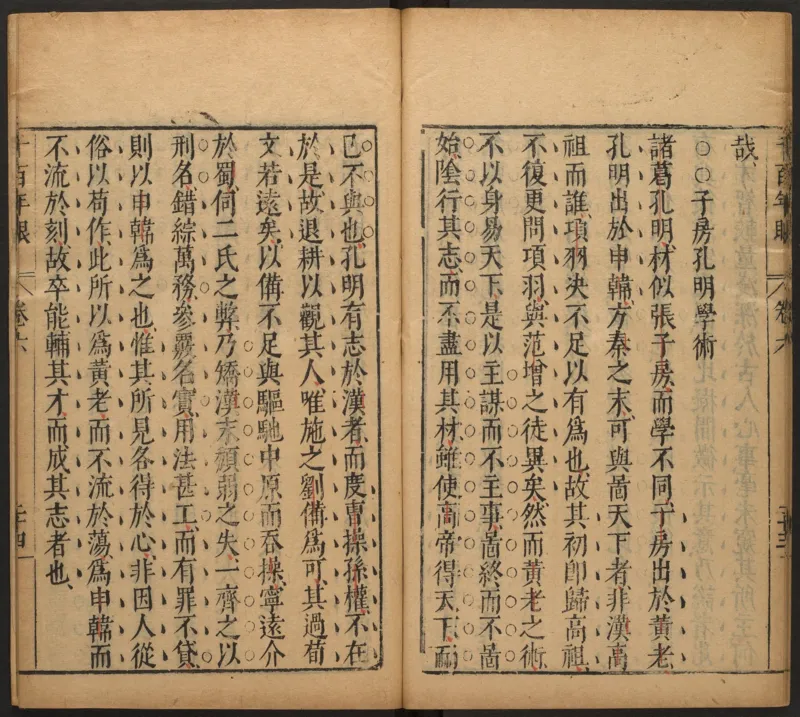 哉
○○子房孔明學術
諸葛孔明材似張子房而學不同子房出於黃老
孔明出於申韓方秦之末可與啚天下者非漢高
祖而誰項羽決不足以有爲也故其初卽歸高祖
不復更問項羽與范增之徒異矣然而黃老之術
不以身易天下是以主謀而不主事啚終而不啚
始陰行其志而不盡用其材雖使高帝得天下而
千百年眼 卷六
已不與也孔明有志於漢者而度曹操孫權不在
於是故退耕以觀其人唯施之劉備爲可其過荀
文若遠矣以備不足與驅馳中原而吞操寧遠介
於蜀伺二氏之弊乃矯漢末頽弱之失一齊之以
刑名錯綜萬務參覈名實用法甚工而有罪不貸
則以申韓爲之也惟其所見各得於心非因人從
俗以苟作此所以爲黃老而不流於蕩爲申韓而
不流於刻故卒能輔其才而成其志者也
千百年眼 卷六 二十四